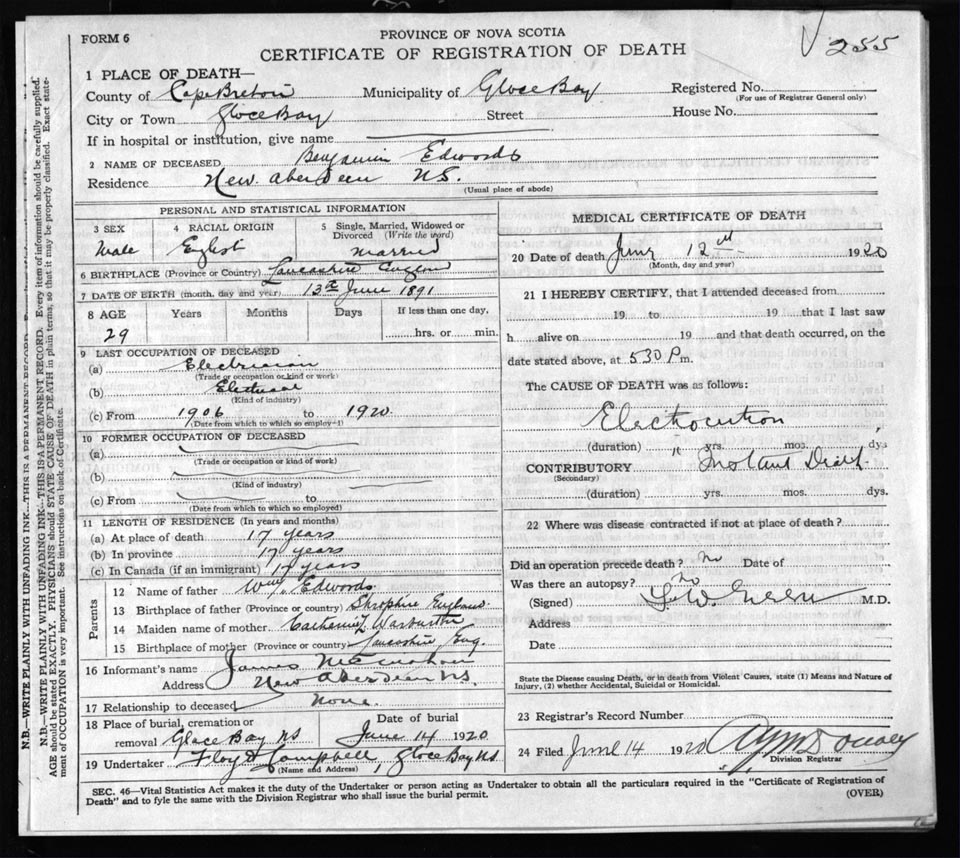 FORM 6
PROVINCE OF NOVA SCOTIA
CERTIFICATE OF REGISTRATION OF DEATH
255
1 PLACE OF DEATH—
County of Cape Breton Municipality of Glace Bay Registered No.
(For use of Registrar General only)
City or Town Glace Bay Street House No.
If in hospital or institution, give name
2 NAME OF DECEASED Benjamin Edwards
Residence New Aberdeen N.S.
(Usual place of abode)
PERSONAL AND STATISTICAL INFORMATION
3 SEX 4 RACIAL ORIGIN 5 Single, Married, Widowed or
Divorced (Write the word)
Male English married
6 BIRTHPLACE (Province or Country) Lancashire
7 DATE OF BIRTH (month, day and year) 13th June 1891
8 AGE Years Months Days If less than one day,
29 hrs. or min.
9 LAST OCCUPATION OF DECEASED
(a) Electrician
(Trade or occupation or kind or work)
(b) Electrical
(Kind of industry)
(c) From 1906 to 1920.
(Date from which to which so employed)
10 FORMER OCCUPATION OF DECEASED
(a)
(Trade or occupation or kind of work)
(b)
(Kind of industry)
(c) From to
(Date from which to which so employed)
11 LENGTH OF RESIDENCE (In years and months)
(a) At place of death 17 years
(b) In province 17 years
(c) In Canada (if an immigrant) 17 years
Parents
12 Name of father Wm. Edwards
13 Birthplace of father (Province or country) Shropshire England
14 Maiden name of mother Catherine Warburton
15 Birthplace of mother (Province or country) Lancashire Eng.
16 Informant's name James
Address New Aberdeen NS.
17 Relationship to deceased None.
18 Place of burial, cremation or Date of burial
removal Glace Bay NS June 14 1920
19 Undertaker Floyd Campbell, Glace Bay NS
(Name and Address)
MEDICAL CERTIFICATE OF DEATH
20 Date of death June 12th 1920
(Month, day and year)
21 I HEREBY CERTIFY, that I attended deceased from
19 to 19 that I last saw
h alive on 19 and that death occurred, on the
date stated above, at 530 P m.
The CAUSE OF DEATH was as follows:
Electrocution
(duration) yrs. mos. dys
CONTRIBUTORY Instant Death.
(Secondary)
(duration) yrs. mos. dys.
22 Where was disease contracted if not at place of death?
Did an operation precede death? No Date of
Was there an autopsy? No
(Signed) M.D.
Address
Date
State the Disease causing Death, or in death from Violent Causes, state (1) Means and Nature of
Injury, (2) whether Accidental, Suicidal or Homicidal.
23 Registrar's Record Number
24 Filed June 14 1920
Division Registrar
SEC. 46—Vital Statistics Act makes it the duty of the Undertaker or person acting as Undertaker to obtain all the particulars required in the "Certificate of Registration of
Death" and to fyle the same with the Division Registrar who shall issue the burial permit.
(OVER)
N.B.—WRITE PLAINLY WITH UNFADING INK—THIS IS A PERMANENT RECORD.
N.B.—WRITE PLAINLY WITH UNFADING INK—THIS IS A PERMANENT RECORD. Every item of information should be carefully supplied.
AGE should be stated EXACTLY. PHYSICIANS should STATE CAUSE OF DEATH in plain terms, so that it may be properly classified. Exact state-
ment of OCCUPATION is very important. See instructions on back of Certificate.